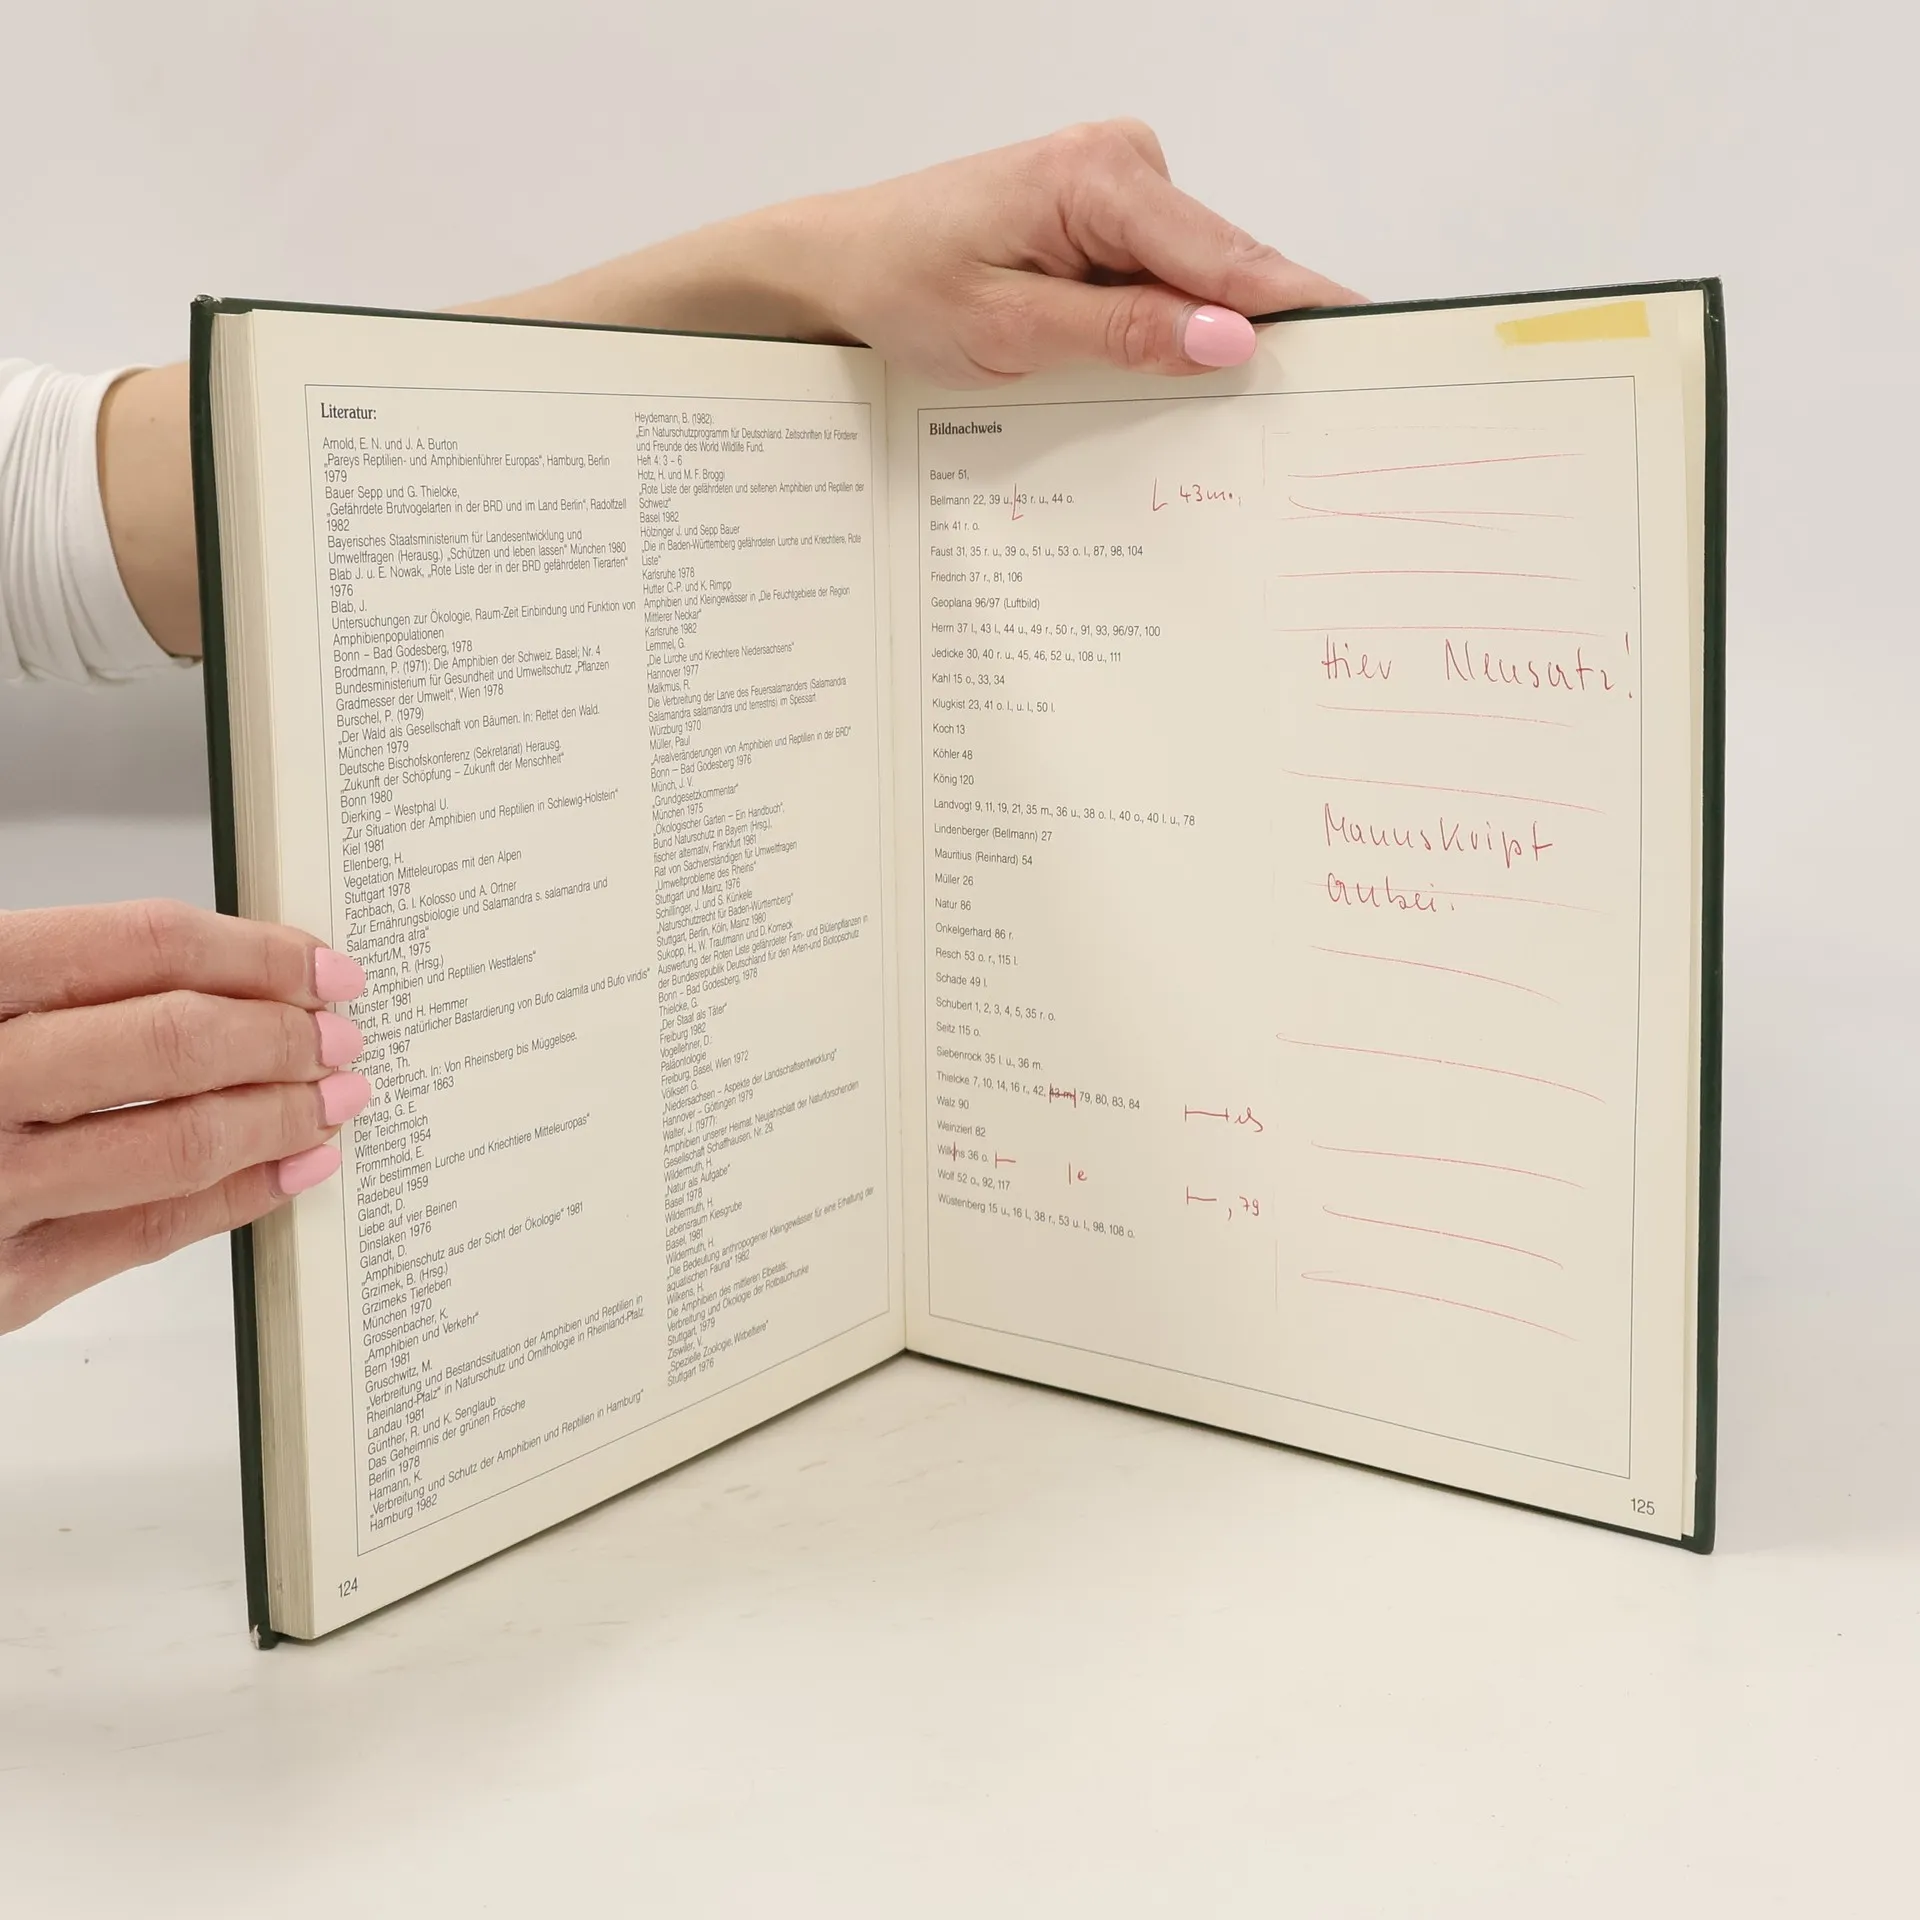 Literatur:
Arnold, E. N. und J. A. Burton
„Pareys Reptilien- und Amphibienführer Europas“, Hamburg, Berlin
1979
Bauer Sepp und G. Thielcke,
„Gefährdete Brutvogelarten in der BRD und im Land Berlin“, Radolfzell
1982
Bayerisches Staatsministerium für Landesentwicklung und
Umweltfragen (Herausg.) „Schützen und leben lassen“ München 1980
Blab J. u. E. Nowak, „Rote Liste der in der BRD gefährdeten Tierarten“
1976
Blab, J.
Untersuchungen zur Ökologie, Raum-Zeit Einbindung und Funktion von
Amphibienpopulationen
Bonn – Bad Godesberg, 1978
Brodmann, P. (1971): Die Amphibien der Schweiz. Basel; Nr. 4
Bundesministerium für Gesundheit und Umweltschutz „Pflanzen
Gradmesser der Umwelt“, Wien 1978
Burschel, P. (1979)
„Der Wald als Gesellschaft von Bäumen. In: Rettet den Wald.
München 1979
Deutsche Bischofskonferenz (Sekretariat) Herausg.
„Zukunft der Schöpfung – Zukunft der Menschheit“
Bonn 1980
Dierking – Westphal U.
„Zur Situation der Amphibien und Reptilien in Schlewig-Holstein“
Kiel 1981
Ellenberg, H.
Vegetation Mitteleuropas mit den Alpen
Stuttgart 1978
Fachbach, G. I. Kolosso und A. Ortner
„Zur Ernährungsbiologie und Salamandra s. salamandra und
Salamandra atra“
Frankfurt/M., 1975
dmann, R. (Hrsg.)
e Amphibien und Reptilien Westfalens“
Münster 1981
indt, R. und H. Hemmer
achweis natürlicher Bastardierung von Bufo calamita und Bufo viridis“
Leipzig 1967
Fontane, Th.
Oderbruch. In: Von Rheinsberg bis Müggelsee.
in & Weimar 1863
Freytag, G. E.
Der Teichmolch
Wittenberg 1954
Frommhold, E.
„Wir bestimmen Lurche und Kriechtiere Mitteleuropas“
Radebeul 1959
Glandt, D.
Liebe auf vier Beinen
Dinslaken 1976
Glandt, D.
„Amphibienschutz aus der Sicht der Ökologie“ 1981
Grzimek, B. (Hrsg.)
Grzimeks Tierleben
München 1970
Grossenbacher, K.
„Amphibien und Verkehr“
Bern 1981
Gruschwitz, M.
„Verbreitung und Bestandssituation der Amphibien und Reptilien in
Rheinland-Pfalz“ in Naturschutz und Ornithologie in Rheinland-Pfalz
Landau 1981
Günther, R. und K. Senglaub
Das Geheimnis der grünen Frösche
Berlin 1978
Hamann, K.
„Verbreitung und Schutz der Amphibien und Reptilien in Hamburg“
Hamburg 1982
Heydemann, B. (1982).
„Ein Naturschutzprogramm für Deutschland. Zeitschriften für Förderer
und Freunde des World Wildlife Fund.
Heft 4: 3 – 6
Hotz, H. und M. F. Broggi
„Rote Liste der gefährdeten und seltenen Amphibien und Reptilien der
Schweiz“
Basel 1982
Hölzinger J. und Sepp Bauer
„Die in Baden-Württemberg gefährdeten Lurche und Kriechtiere, Rote
Liste“
Karlsruhe 1978
Hutter C.-P. und K. Rimpp
Amphibien und Kleingewässer in „Die Feuchtgebiete der Region
Mittlerer Neckar“
Karlsruhe 1982
Lemmel, G.
„Die Lurche und Kriechtiere Niedersachsens“
Hannover 1977
Malkmus, R.
Die Verbreitung der Larve des Feuersalamanders (Salamandra
Salamandra salamandra und terrestris) im Spessart
Würzburg 1970
Müller, Paul
„Arealveränderungen von Amphibien und Reptilien in der BRD“
Bonn – Bad Godesberg 1976
Münch, J. V.
„Grundgesetzkommentar“
München 1975
„Ökologischer Garten – Ein Handbuch“,
Bund Naturschutz in Bayern (Hrsg.),
fischer alternativ, Frankfurt 1981
Rat von Sachverständigen für Umweltfragen
„Umweltprobleme des Rheins“
Stuttgart und Mainz, 1976
Schillinger, J. und S. Künkele
„Naturschutzrecht für Baden-Württemberg“
Stuttgart, Berlin, Köln, Mainz 1980
Sukopp, H., W. Trautmann und D. Korneck
Auswertung der Roten Liste gefährdeter Farn- und Blütenpflanzen in
der Bundesrepublik Deutschland für den Arten-und Biotopschutz
Bonn – Bad Godesberg, 1978
Thielcke, G.
„Der Staat als Täter“
Freiburg 1982
Vogellehner, D.:
Paläontologie
Freiburg, Basel, Wien 1972
Völksen G.
„Niedersachsen – Aspekte der Landschaftsentwicklung“
Hannover – Göttingen 1979
Walter, J. (1977):
Amphibien unserer Heimat. Neujahrsblatt der Naturforschenden
Gesellschaft Schaffhausen, Nr. 29.
Wildermuth, H.
„Natur als Aufgabe“
Basel 1978
Wildermuth, H.
Lebensraum Kiesgrube
Basel, 1981
Wildermuth, H.
„Die Bedeutung anthropogener Kleingewässer für eine Erhaltung der
aquatischen Fauna“ 1982
Wilkens, H.
Die Amphibien des mittleren Elbetals:
Verbreitung und Ökologie der Rotbauchunke
Stuttgart, 1979
Ziswiler, V.
„Spezielle Zoologie, Wirbeltiere“
Stuttgart 1976
124
Bildnachweis
Bauer 51,
Bellmann 22, 39 u., 43 r. u., 44 o. 43 m.,
Bink 41 r. o.
Faust 31, 35 r. u., 39 o., 51 u., 53 o. l., 87, 98, 104
Friedrich 37 r., 81, 106
Geoplana 96/97 (Luftbild)
Herrn 37 l., 43 l., 44 u., 49 r., 50 r., 91, 93, 96/97, 100
Jedicke 30, 40 r. u., 45, 46, 52 u., 108 u., 111
Hier Neusatz!
Kahl 15 o., 33, 34
Klugkist 23, 41 o. l., u. l., 50 l.
Koch 13
Köhler 48
König 120
Landvogt 9, 11, 19, 21, 35 m., 36 u., 38 o. l., 40 o., 40 l. u., 78
Lindenberger (Bellmann) 27
Manuskript
Mauritius (Reinhard) 54
Müller 26
anbei.
Natur 86
Onkelgerhard 86 r.
Resch 53 o. r., 115 l.
Schade 49 l.
Schubert 1, 2, 3, 4, 5, 35 r. o.
Seitz 115 o.
Siebenrock 35 l. u., 36 m.
Thielcke 7, 10, 14, 16 r., 42, 43 m, 79, 80, 83, 84
Walz 90
Weinzierl 82
Wilkns 36 o. e
Wolf 52 o., 92, 117 , 79
Wüstenberg 15 u., 16 l., 38 r., 53 u. l., 98, 108 o.
125